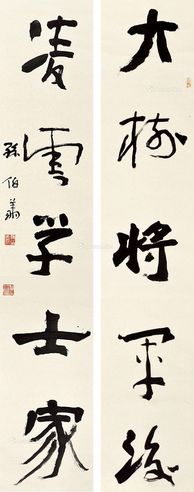 大树将军后
凌云学士家
孙伯翔